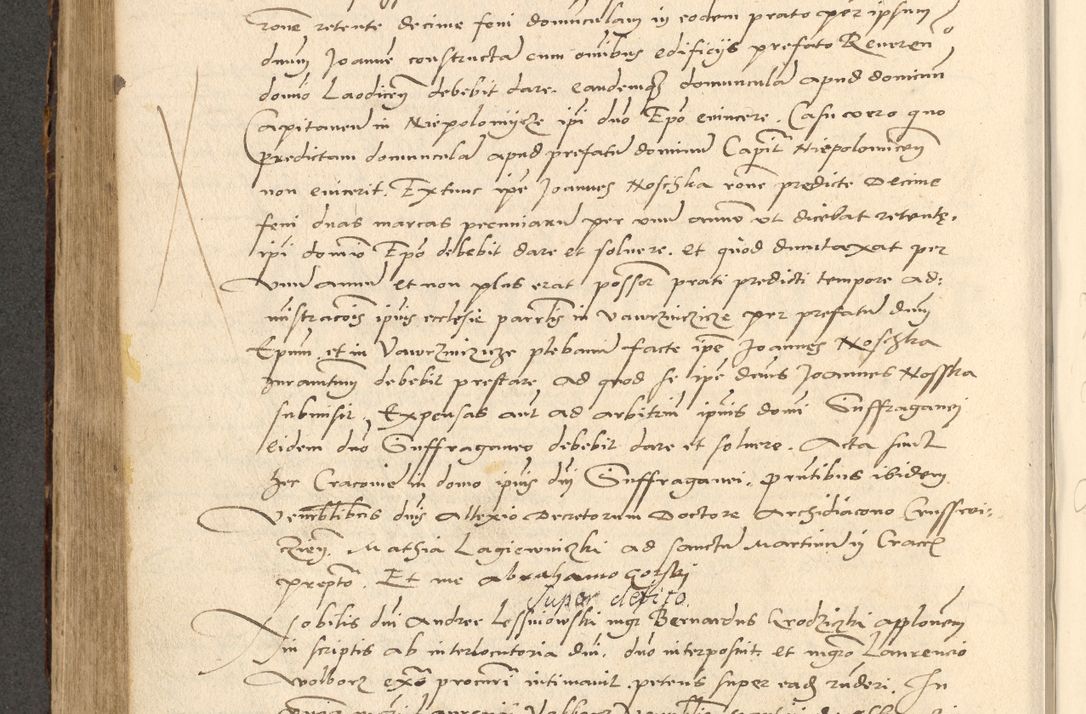 rone retente decime feni domunculam in eodem prato per ipsum
dnum Joanne constructa cum omibus edificijs prefato Reveren
domo Laodicen debebit dare. eandemq domuncula apud dominu
Capitaneu in Niepolomijcze ipi dno Epo evincere. Casu vero quo
predictam domuncula apud prefatu dominu Capit Niepolomicen
non evicerit. Extunc ipe Joannes Noschka rone predicte Decime
feni duas marcas pecuniaru per unu annu ut dicebat retente.
ipi domio Epo debebit dare et solvere. et quod dumtaxat per
unu annu et non plus erat possor prati predicti tempore ad:
mistracois ipius ecclesie parrlis in Vawrzinczicze per prefatu dnu
Epum. et in Vawrzinczicze plebanu facte ipe Joannes Noschka
Juramtum debebit prestare ad quod se ipe deus Joannes Nosska
submisit, Expensas aut ad arbitriu ipius domi Suffraganei
eidem dno Suffraganeo debebit dare et solvere. Acta sunt
hec Cracovie in domo ipius dni Suffraganei. pntibus ibidem
Venerblibus dnis Allexio Decretorum Doctore Archidiacono
Mathia Lagiewniczki ad sanctu Martinu ij Cracc
prepto. Et me Abrahamo Golski
Super debito.
Nobilis dni Andree Lessniowski mgr Bernardus Crodziczki applonem
in scriptis ab interlocutoria dni. dno interposuit et mgro Laurencio
Wolborz procuri intimavit. petens super ead ruderi. In